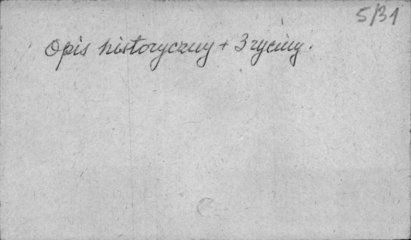 5/31
Opis historyczny + 3 ryciny.